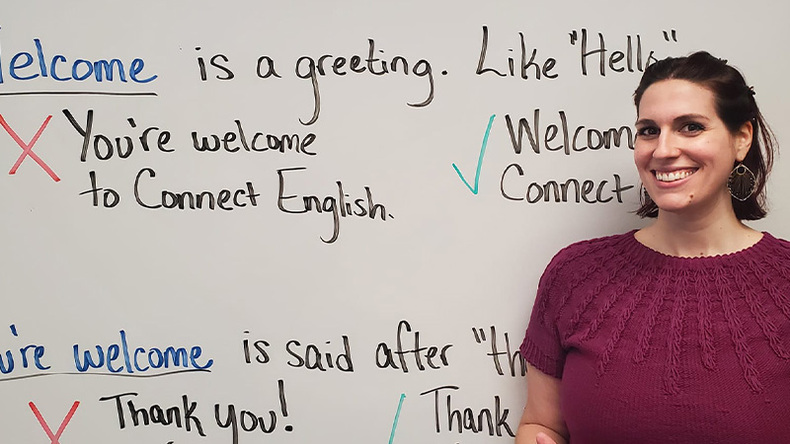 Welcome is a greeting. Like "Hello"
You're welcome
to Connect English.
Welcom
Connect
ou're welcome is said after "th
Thank you!
Thank